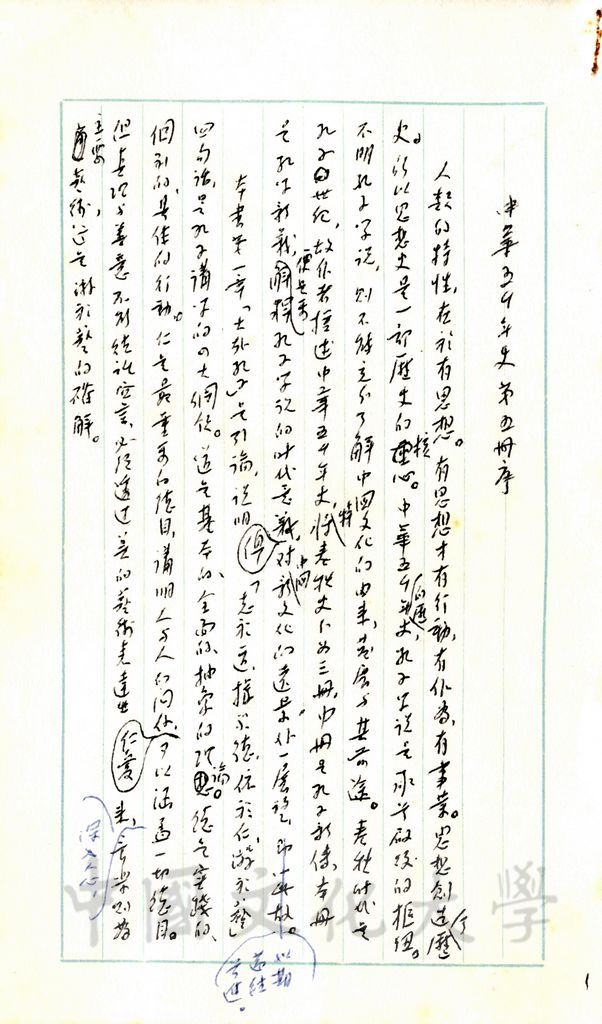 中華五千年史第五冊序
人類的特性，在於有思想。有思想才有行動，有作為，有事業。思想創造歷
史。所以思想史是一部歷史的核心。中華五千年的歷史，孔子學說是承先啟後的樞紐。
不明孔子學說，則不能充分了解中國文化的由來，發展與其前途。春秋時代是
孔子世紀，故作者撰述中華五千年史，特將春秋史分為三冊，中冊是孔子新傳，本冊
是孔學新義，便是要解釋孔子學說的時代意義，俾對中國新文化的遠景，作一展望，即此故。
以期
本書第一章「大哉孔子」是引論，說明「志於道，據於德，依於仁，游於藝」
四句話，是孔子講學的四大綱領。道是基本的、全面的、抽象的理論。德是實踐的、
個別的、具體的行動。仁是最重要的德目，講明人與人的關係，可以涵蓋一切德目。
但真理與善意不能徒託空言，必須透過美的藝術表達出仁愛來，音樂則為
深入人心
主要藝術，這是游於藝的確解。
中國文化大學